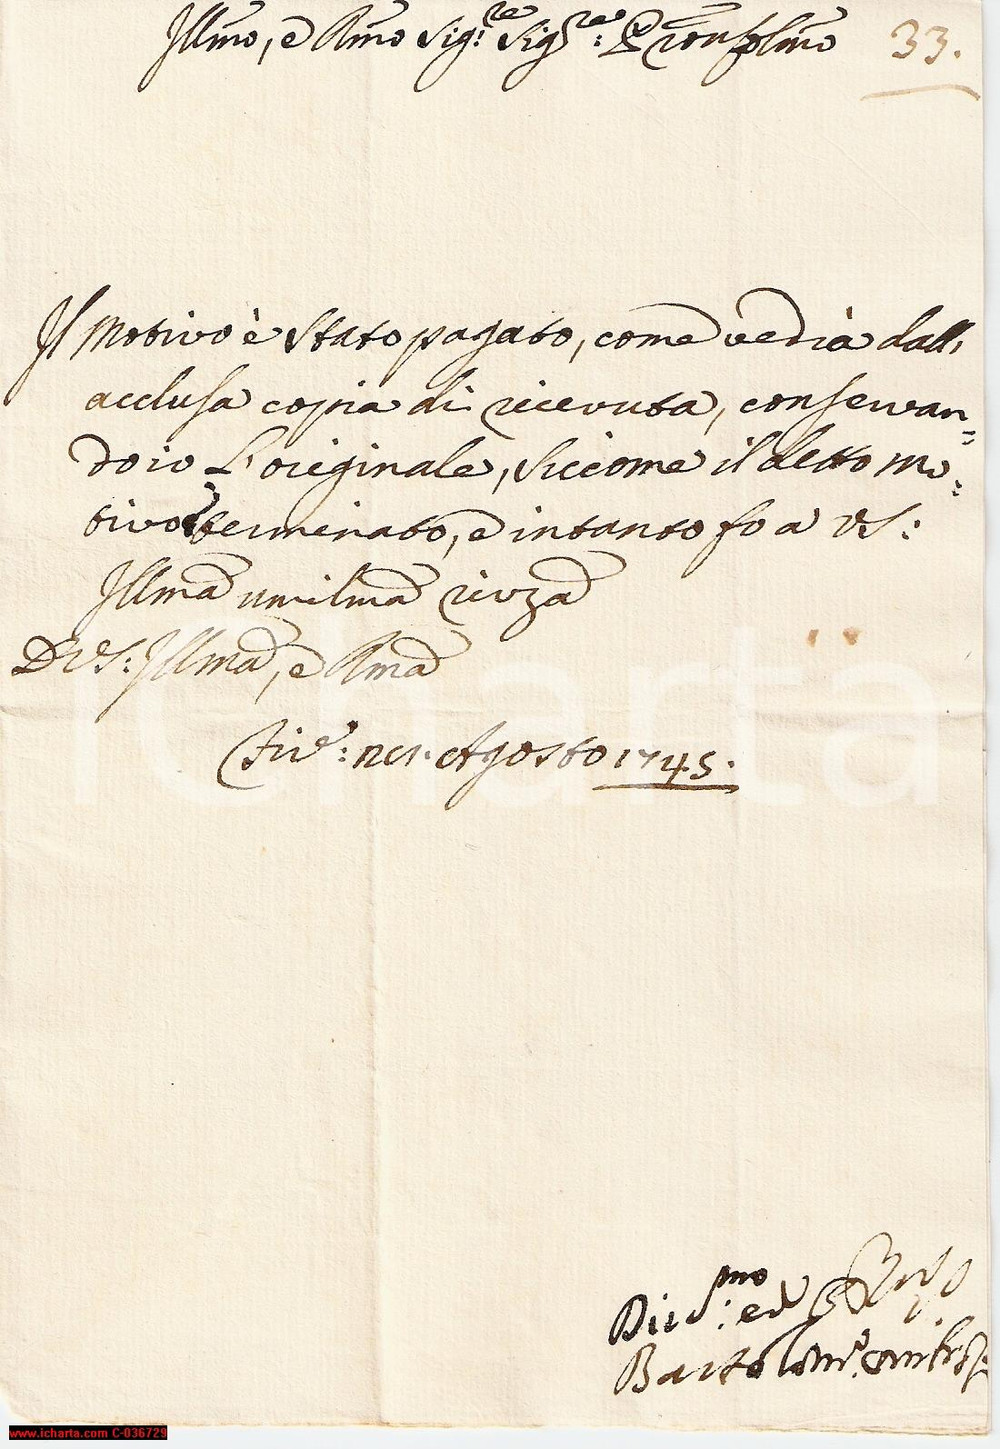 Illmo, e Rmo Sig:re Sig:re Pron Colmo
33.
Il Motivo è stato pagato, come vedrà dall,
acclusa copia di ricevuta, conservan=
do io L'originale, siccome il detto Mo:
tivo terminato, e intanto fo a VS:
Illma umilma rivza
Di VS: Illma, e Rma
Fir:e n 1. Agosto 1745.
Div:mo ed
Bartolom:o
icharta
www.icharta.com C-036729